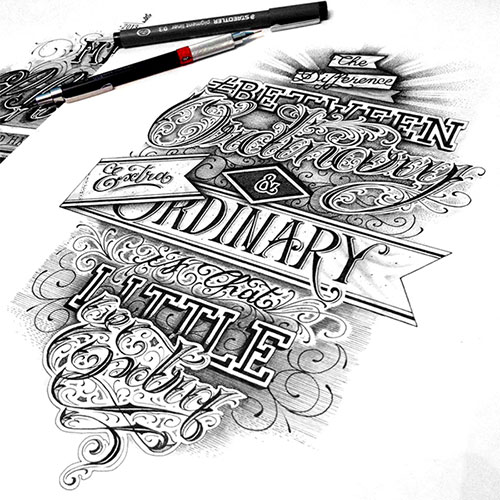 STAEDTLER
pigment liner 0.3
2013
The
Difference
BETWEEN
Ordinary
&
Extra
ORDINARY
is that
LITTLE
Extra